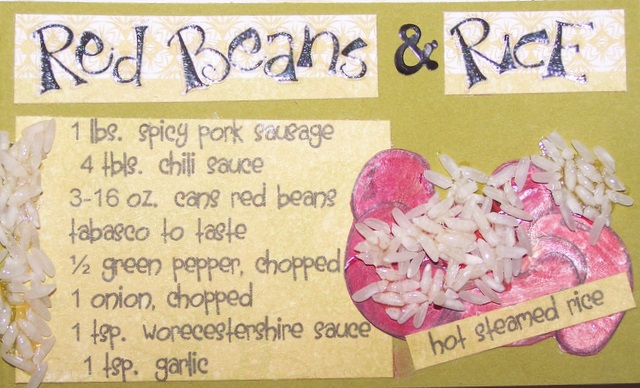 Red Beans & Rice
1 lbs. spicy pork sausage
4 tbls. chili sauce
3-16 oz. cans red beans
tabasco to taste
½ green pepper, chopped
1 onion, chopped
1 tsp. worecestershire sauce
1 tsp. garlic
hot steamed rice